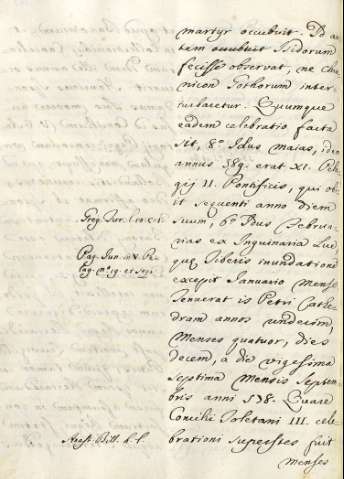 martyr occubuit. Id au
tem occubuit Isidorum
fecisse observat, ne chro
nicon Gothorum inter
turbaretur. Quumque
eadem celebratio facta
sit, 8.º Idus maias, ideo
annus 589. erat XI. Pela
gij II. Pontificis, qui ob
iit sequenti anno diem
suum, 6.º Idus Februa
rias ex Inguinaria Lue
que Tiberis inundatione
excepit Januario Mense
Tenuerat is Petri Cathe
dram annos undecim,
Menses quatuor, dies
decem, a die vigessima
septima Mensis Septem
bris anni 578. Quare
Concilii Toletani III. cele
brationi superstes fuit
menses
Greg. Tur. l. 10. c. 1.
Pag. Jun. in V. Pe
lag. n.º 19. et seqq.
Anast. Bibl. h. l.